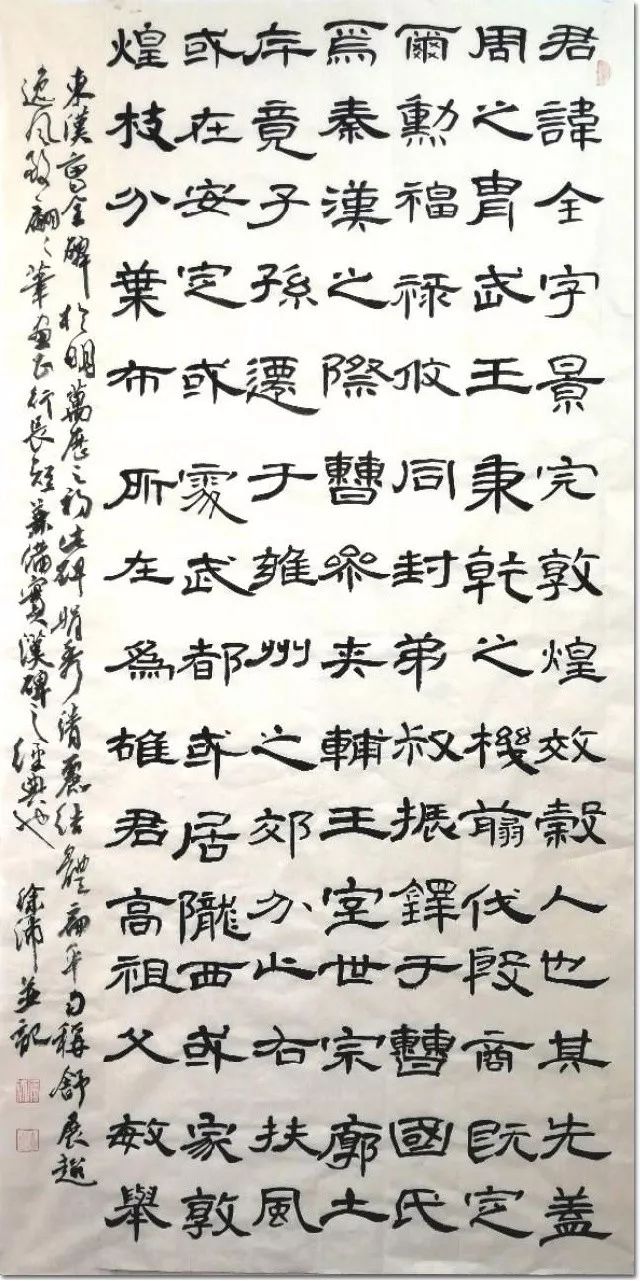 君諱全字景完敦煌效穀人也其先蓋
周之胄武王秉乾之機翦伐殷商既定
爾勳福祿攸同封弟叔振鐸于曹國氏
焉秦漢之際曹參夾輔王室世宗廓土
斥竟子孫遷于雍州之郊分止右扶風
或在安定或處武都或居隴西或家敦
煌枝分葉布所在為雄君高祖父敏舉
東漢曹全碑於明萬歷之初此碑娟秀清麗結體扁平勻稱舒展超
逸風致翩々筆畫正行長短兼備實漢碑之經典也 徐沛並記